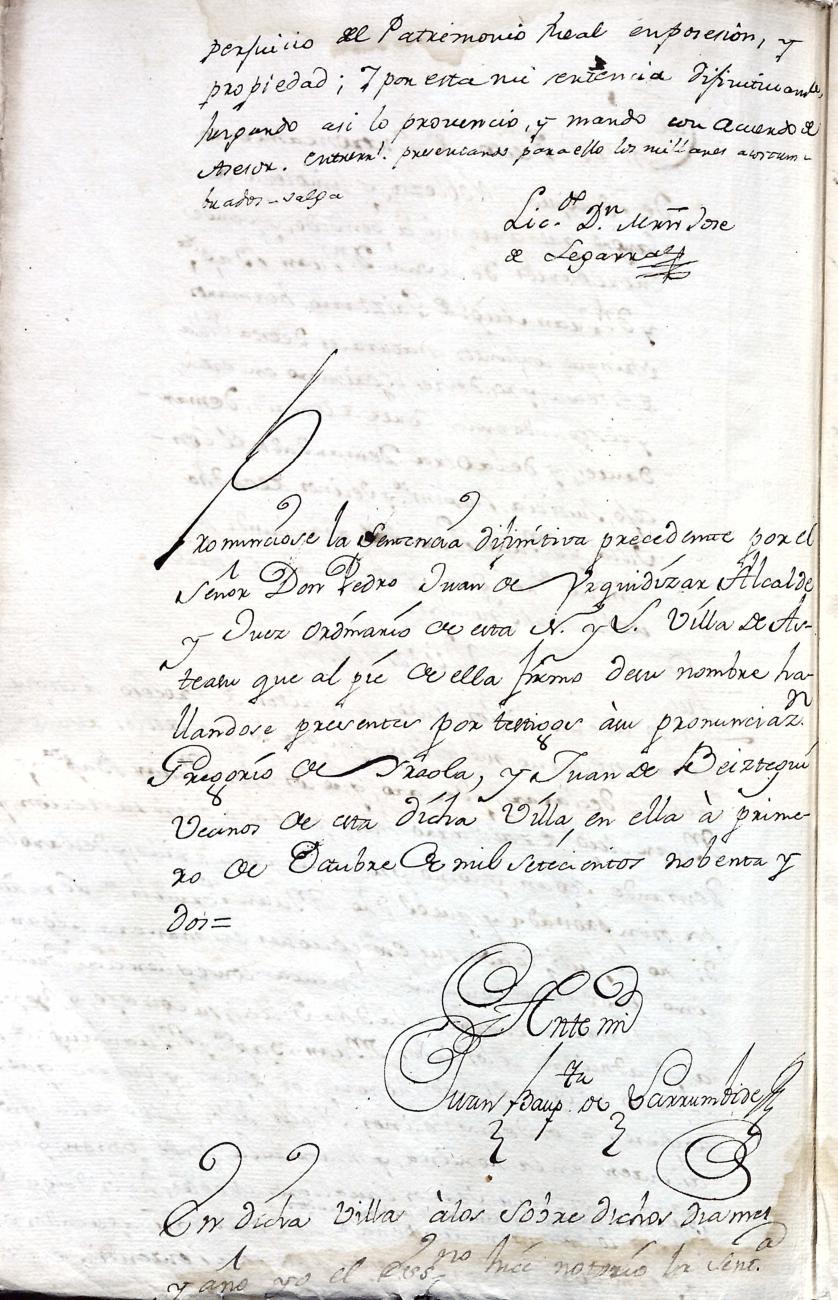 perjuicio del Patrimonio Real en posesión, y
propiedad; Y por esta mi sentencia difinitivamte,
juzgando asi lo pronuncio, y mando con acuerdo de
Asesor. presentando para ello los millares acostum-
brados - valga
Lic.do Dn. Mrn Jose
de Legarra
Pronuncióse la Sentencia difinitiva precedente por el
Señor Don Pedro Juan de Vrquidizar Alcalde
y Juez ordinario de esta N. y L. Villa de As-
teasu que al pie de ella firmo de su nombre ha-
llandose presentes por testigos à su pronunciaz.n
Gregorio de Yraola, y Juan de Beiztegui
Vecinos de esta dicha Villa, en ella à prime-
ro de Octubre de mil setecientos nobenta y
dos=
Ante mi
Juan Baup.ta de Larrumbide
En dicha Villa à los sobre dichos dia mes
y año yo el Ess.no hice notorio la Sent.a